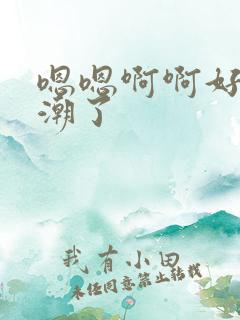 嗯嗯啊啊好
潮了
我有小田
未经同意禁止转载